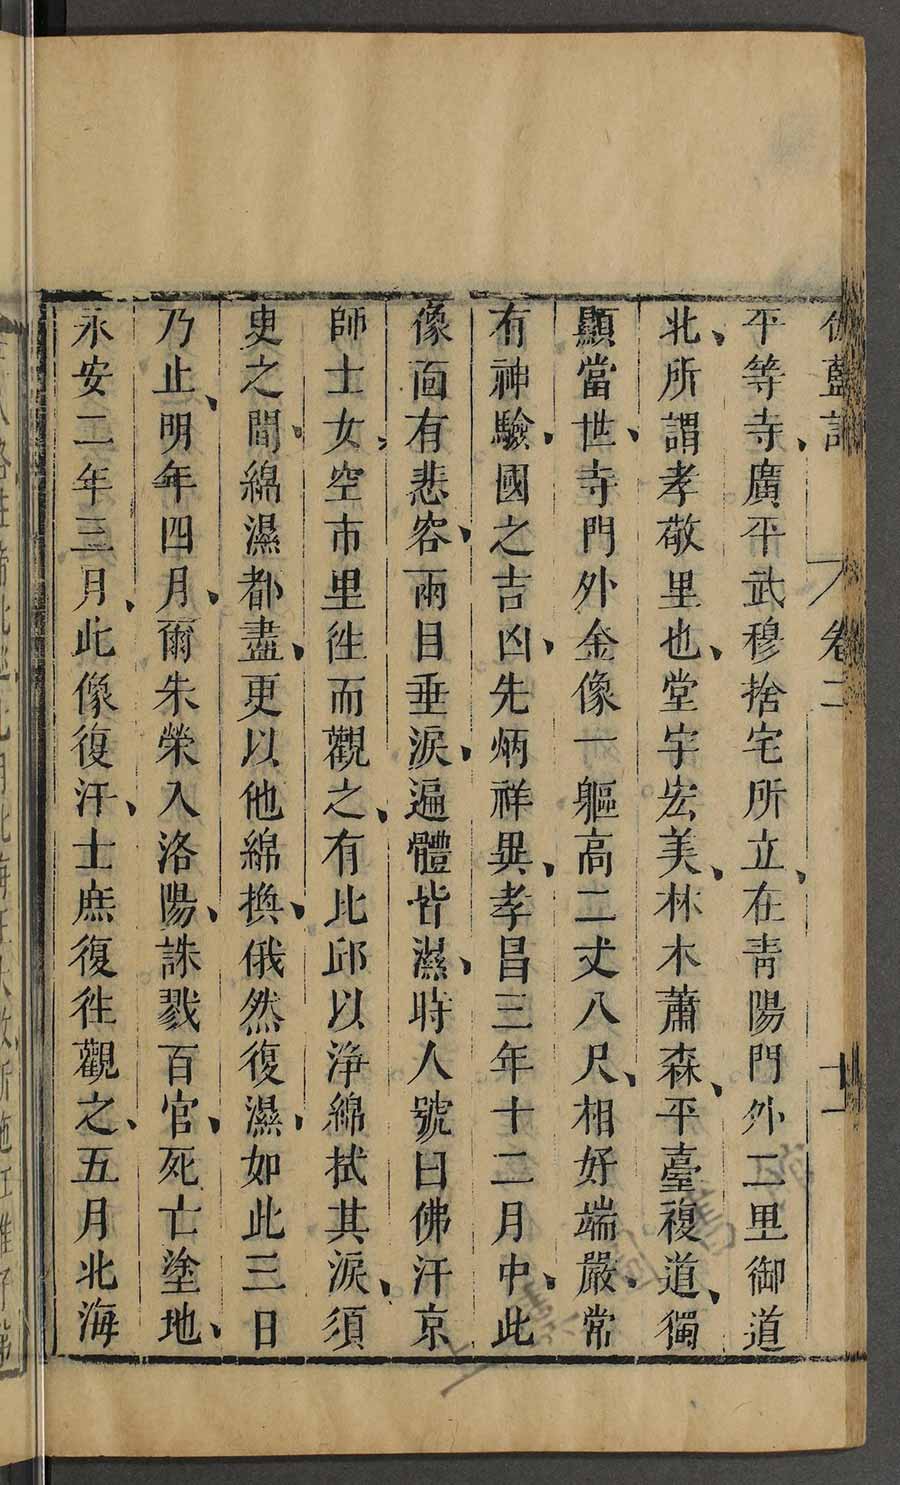 伽藍記 卷二 十一
平等寺、廣平武穆捨宅所立、在青陽門外二里御道
北、所謂孝敬里也、堂宇宏美、林木蕭森、平臺複道、獨
顯當世、寺門外金像一軀高二丈八尺、相好端嚴、常
有神驗、國之吉凶、先炳祥異、孝昌三年十二月中、此
像面有悲容、兩目垂淚、遍體皆濕、時人號曰佛汗京
師士女、空市里徃而觀之、有比邱以淨綿拭其淚、須
臾之間、綿濕都盡、更以他綿換、俄然復濕、如此三日
乃止、明年四月、爾朱榮入洛陽、誅戮百官、死亡塗地、
永安二年三月、此像復汗、士庶復徃觀之、五月北海